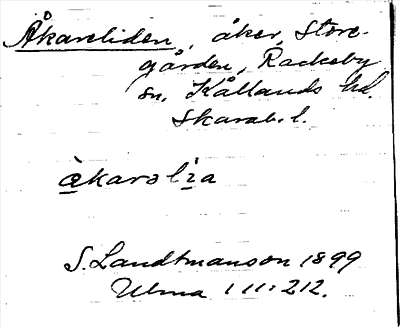 Åkareliden, åker, Store-
gården, Rackeby
sn, Kållands hd.
Skarab. l.
àkarəlìa
S. Landtmanson 1899
Ulma 111:212.